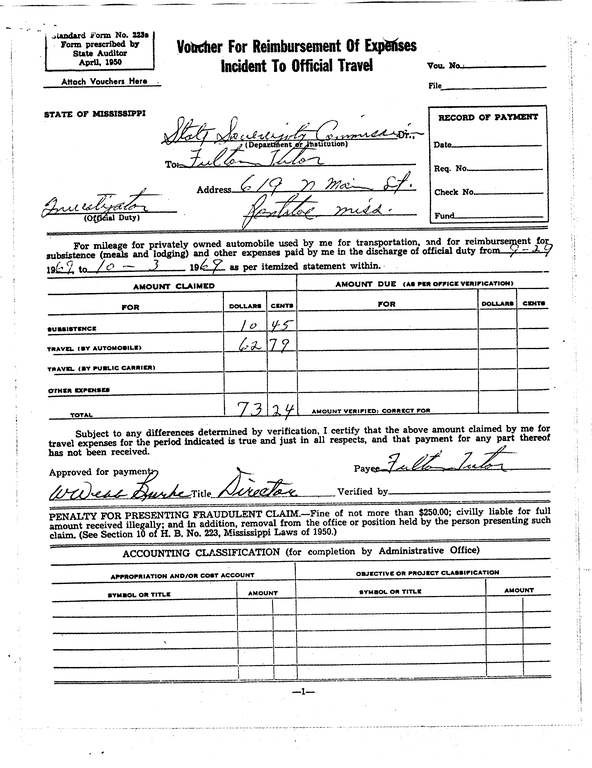 Standard Form No. 223a
Form prescribed by
State Auditor
April, 1950
Attach Vouchers Here
Voucher For Reimbursement Of Expenses
Incident To Official Travel
Vou. No.
File
STATE OF MISSISSIPPI
State Sovereignty Commission Dr.,
(Department or Institution)
To Fulton Tutor
Address 619 N Main St.
Pontotoc Miss.
Investigator
(Official Duty)
RECORD OF PAYMENT
Date
Req. No.
Check No.
Fund
For mileage for privately owned automobile used by me for transportation, and for reimbursement for
subsistence (meals and lodging) and other expenses paid by me in the discharge of official duty from 9-29
1969, to 10-3 1969 as per itemized statement within.
AMOUNT CLAIMED
AMOUNT DUE (AS PER OFFICE VERIFICATION)
FOR DOLLARS CENTS FOR DOLLARS CENTS
SUBSISTENCE 10 45
TRAVEL (BY AUTOMOBILE) 62 79
TRAVEL (BY PUBLIC CARRIER)
OTHER EXPENSES
TOTAL 73 24 AMOUNT VERIFIED: CORRECT FOR
Subject to any differences determined by verification, I certify that the above amount claimed by me for
travel expenses for the period indicated is true and just in all respects, and that payment for any part thereof
has not been received.
Approved for payment: Payee Fulton Tutor
W Webb Burke Title Director Verified by
PENALTY FOR PRESENTING FRAUDULENT CLAIM.—Fine of not more than $250.00; civilly liable for full
amount received illegally; and in addition, removal from the office or position held by the person presenting such
claim. (See Section 10 of H. B. No. 223, Mississippi Laws of 1950.)
ACCOUNTING CLASSIFICATION (for completion by Administrative Office)
APPROPRIATION AND/OR COST ACCOUNT OBJECTIVE OR PROJECT CLASSIFICATION
SYMBOL OR TITLE AMOUNT SYMBOL OR TITLE AMOUNT
—1—